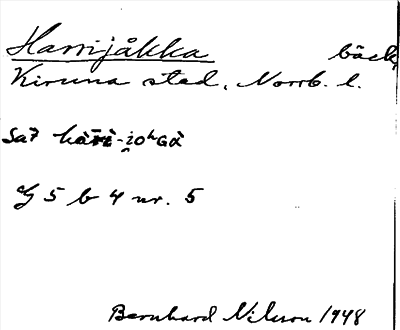 Harrijåkka bäck,
Kiruna stad, Norrb. l.
Sa7
G 5 b 4 nr. 5
Bernhard Nilsson 1948